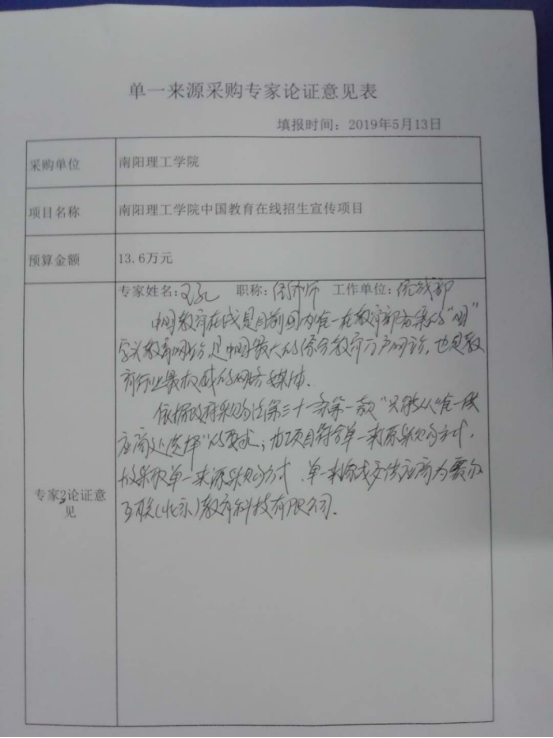 单一来源采购专家论证意见表
填报时间：2019年5月13日
采购单位 南阳理工学院
项目名称 南阳理工学院中国教育在线招生宣传项目
预算金额 13.6万元
专家姓名： 职称：律师 工作单位：统战部
中国教育在线是目前国内唯一在教育部备案的“国”
字头教育网站，是中国最大的综合教育门户网站，也是教
育行业最权威的网络媒体。
依据政府采购法第三十一条第一款“只能从唯一供
应商处选择”的要求，该项目符合单一来源采购方式，
故采取单一来源采购方式，单一来源成交供应商为赛尔
互联（北京）教育科技有限公司。
专家2论证意
见